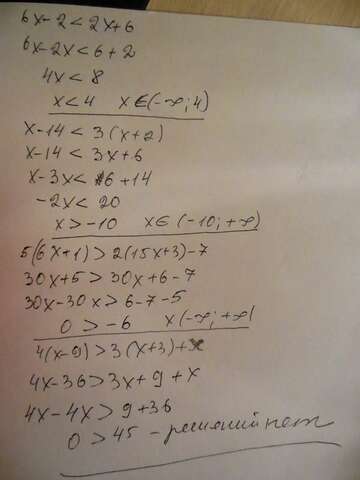 6x-2<2x+6
6x-2x<6+2
4x<8
x<4 x∈(-∞;4)
x-14<3(x+2)
x-14<3x+6
x-3x<6+14
-2x<20
x>-10 x∈(-10;+∞)
5(6x+1)>2(15x+3)-7
30x+5>30x+6-7
30x-30x>6-7-5
0>-6 x(-∞;+∞)
4(x-9)>3(x+3)+x
4x-36>3x+9+x
4x-4x>9+36
0>45 - решений нет